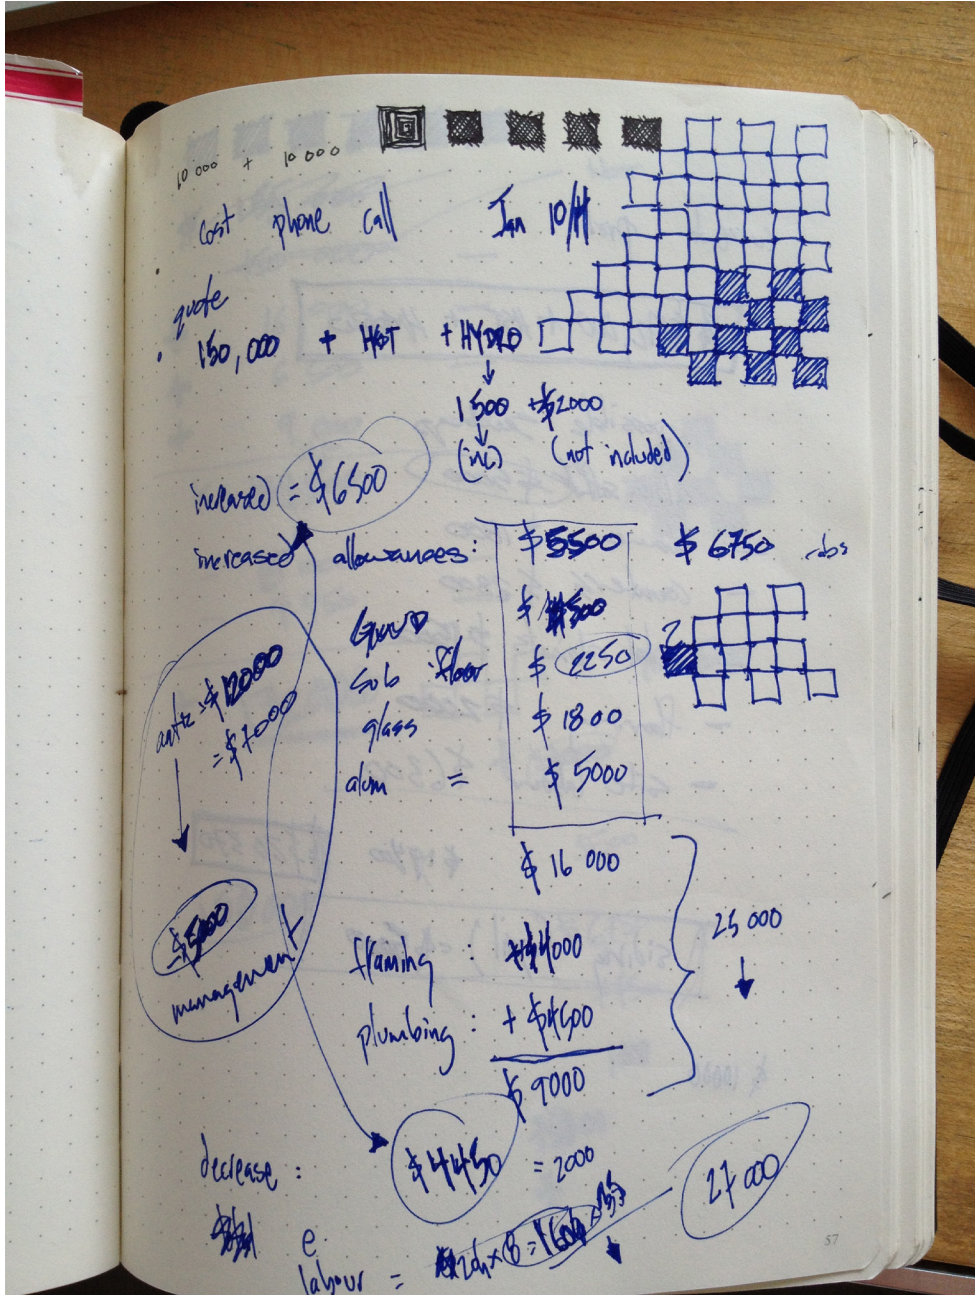 10 000 + 10 000
Cost phone call Jan 10/14
quote
150,000 + HST + HYDRO
1500 + $2000
(inc) (not included)
increased = $6500
increased allowances: $5500 $6750
$ 500
sub floor $ 2250
glass $ 1800
alum = $ 5000
attic = $12000
= $7000
$5000
management
$ 16 000
framing : + $4000
plumbing : + $4500
$ 9000
25 000
decrease : $4450 = 2000
27 000
e
labour = × 8 = 160h ×
57